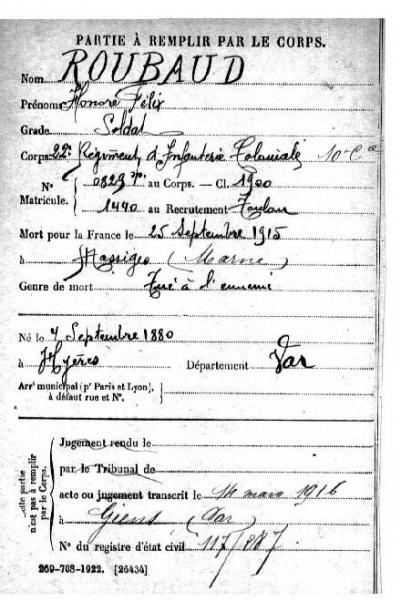 PARTIE À REMPLIR PAR LE CORPS.
Nom ROUBAUD
Prénoms Honoré Félix
Grade Soldat
Corps 22e Régiment d'Infanterie Coloniale 10e Cie
N° Matricule. 0823 au Corps. — Cl. 1900
1440 au Recrutement Toulon
Mort pour la France le 25 Septembre 1915
à Massiges (Marne)
Genre de mort Tué à l'ennemi
Né le 4 Septembre 1880
à Hyères Département Var
Arrt municipal (pr Paris et Lyon),
à défaut rue et N°.
Cette partie n'est pas à remplir par le Corps.
Jugement rendu le
par le Tribunal de
acte ou jugement transcrit le 14 mars 1916
à Giens (Var)
N° du registre d'état civil 117/287
269-708-1922. [26434]